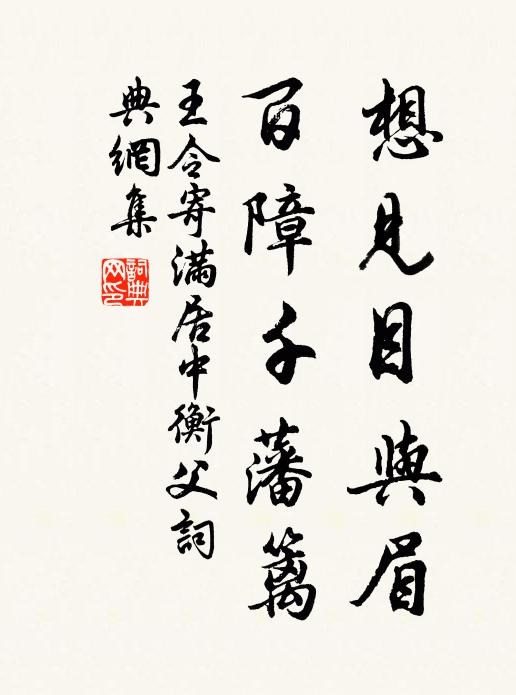 想見目與眉
百障千藩籬
王令寄滿居中衡父詞
典網集
詞典
网印